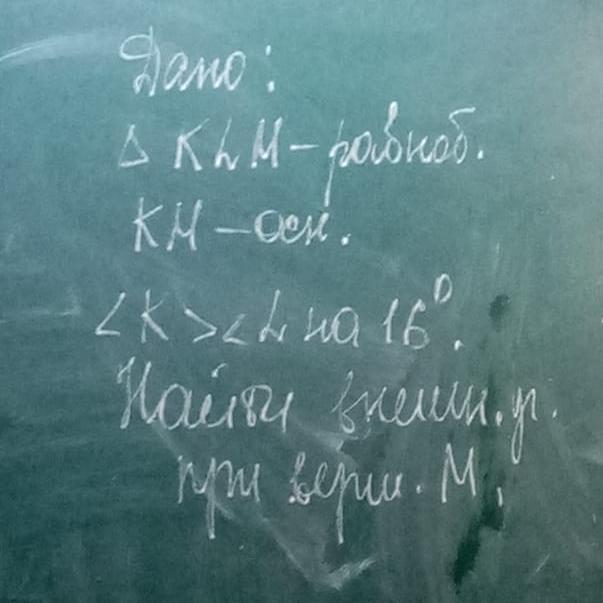 Дано:
Δ KLM – равноб.
КМ – осн.
<K > <L на 16⁰.
Найти внешн. уг.
при верш. М.